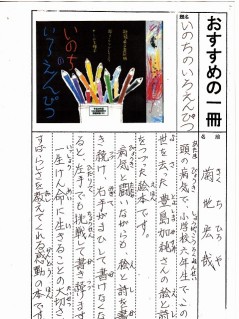 おすすめの一冊
題名
いのちのいろえんぴつ
いのちの
いろえんぴつ
名前
菊地宏哉
きくち ひろや
頭の病気で、小学校六年生でこの
世を去った豊島加純さんの絵と詩
をつづった絵本です。
病気と闘いながらも絵と詩を書
き続け、右手がまひして書けなくな
ると、左手でも挑戦して書き続けます。
一生けん命に生きることの大切さ、
すばらしさを教えてくれる感動の本です。